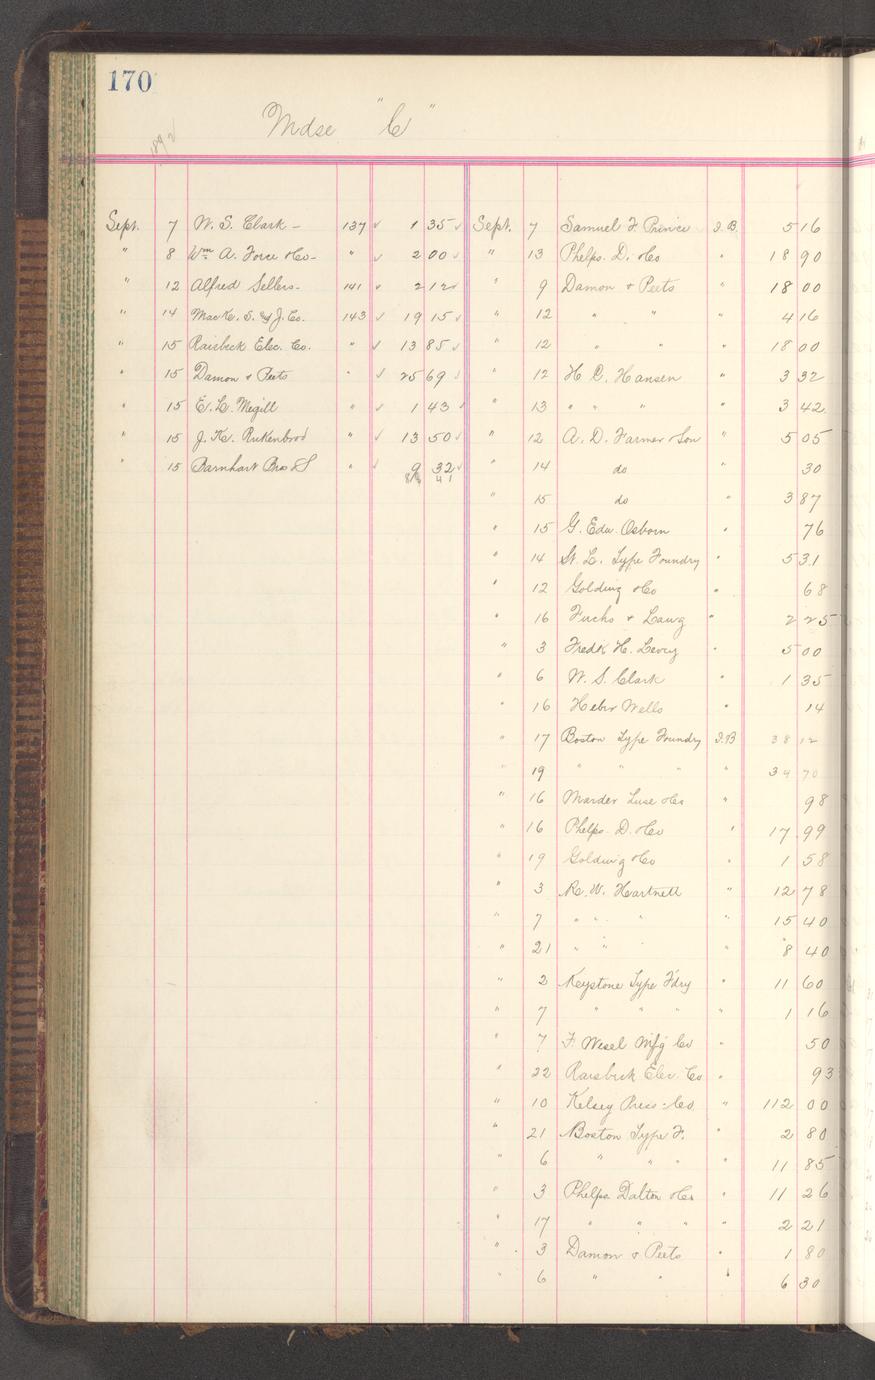 170
Mdse "C"
1892
Sept. 7 W. S. Clark - 137 ✓ 1 35 ✓
" 8 Wm. A. Force & Co - " ✓ 2 00 ✓
" 12 Alfred Sellers - 141 ✓ 2 12 ✓
" 14 MacK. S. & J. Co. 143 ✓ 19 15 ✓
" 15 Raisbeck Elec. Co. " ✓ 13 85 ✓
" 15 Damon & Peets " ✓ 25 69 ✓
" 15 E. L. Megill " ✓ 1 43 ✓
" 15 J. K. Rukenbrod " ✓ 13 50 ✓
" 15 Barnhart Bros & S " ✓ 9 32 ✓
41
Sept. 7 Samuel F. Prince I.B. 5 16
" 13 Phelps. D. & Co " 18 90
" 9 Damon & Peets " 18 00
" 12 " " " 4 16
" 12 " " " 18 00
" 12 H. C. Hansen " 3 32
" 13 " " " " 3 42
" 12 A. D. Farmer & Son " 5 05
" 14 do " 30
" 15 do " 3 87
" 15 G. Edw. Osborn " 76
" 14 St. L. Type Foundry " 5 31
" 12 Golding & Co " 68
" 16 Fuchs & Lang " 2 25
" 3 Fredk H. Levey " 5 00
" 6 W. S. Clark " 1 35
" 16 Heber Wells " 14
" 17 Boston Type Foundry I.B 38 12
" 19 " " " " 34 70
" 16 Marder Luse & Co " 98
" 16 Phelps. D. & Co " 17 99
" 19 Golding & Co " 1 58
" 3 R. W. Hartnett " 12 78
" 7 " " " " 15 40
" 21 " " " " 8 40
" 2 Keystone Type F'dry " 11 60
" 7 " " " " 1 16
" 7 F. Wesel Mfg Co " 50
" 22 Raisbeck Elec. Co " 93
" 10 Kelsey Press. Co. " 112 00
" 21 Boston Type F. " 2 80
" 6 " " " " 11 85
" 3 Phelps Dalton & Co " 11 26
" 17 " " " " 2 21
" 3 Damon & Peets " 1 80
" 6 " " " 6 30